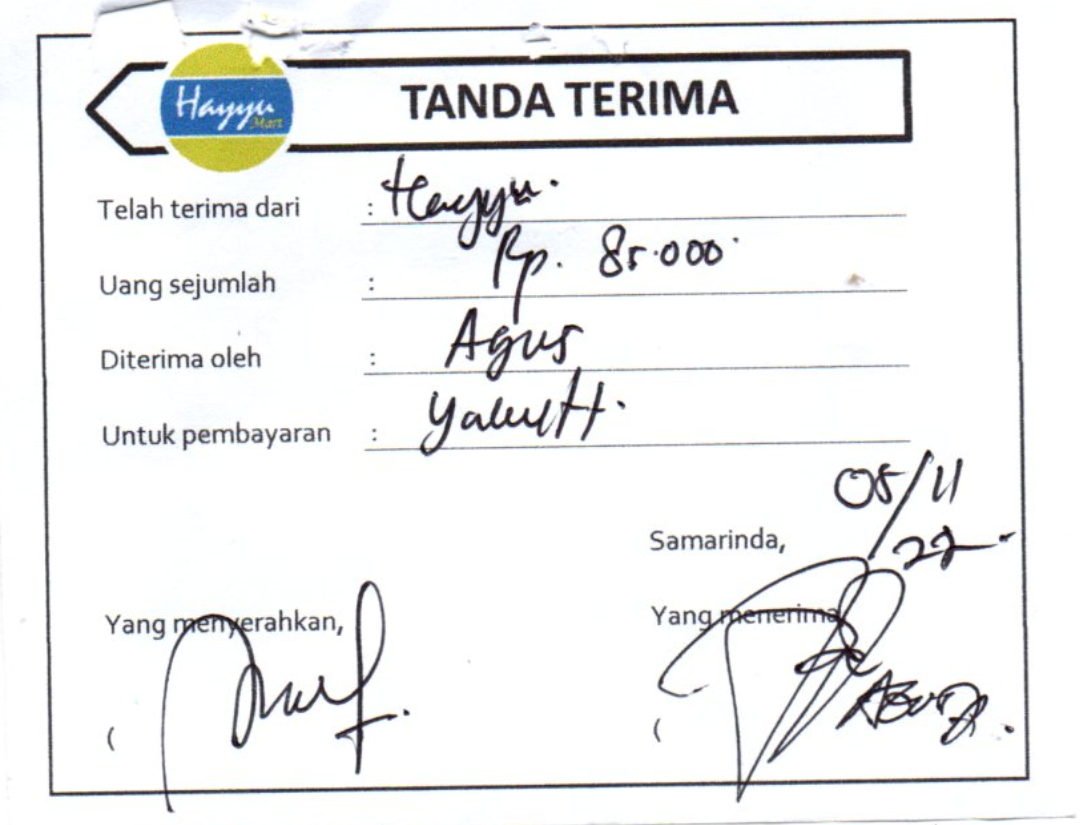 Hayyu
Mart
TANDA TERIMA
Telah terima dari : Hayyu.
Uang sejumlah : Rp. 85.000
Diterima oleh : Agus
Untuk pembayaran : Yakult.
05/11
Samarinda, 22
Yang menyerahkan,
Yang menerima
(
(